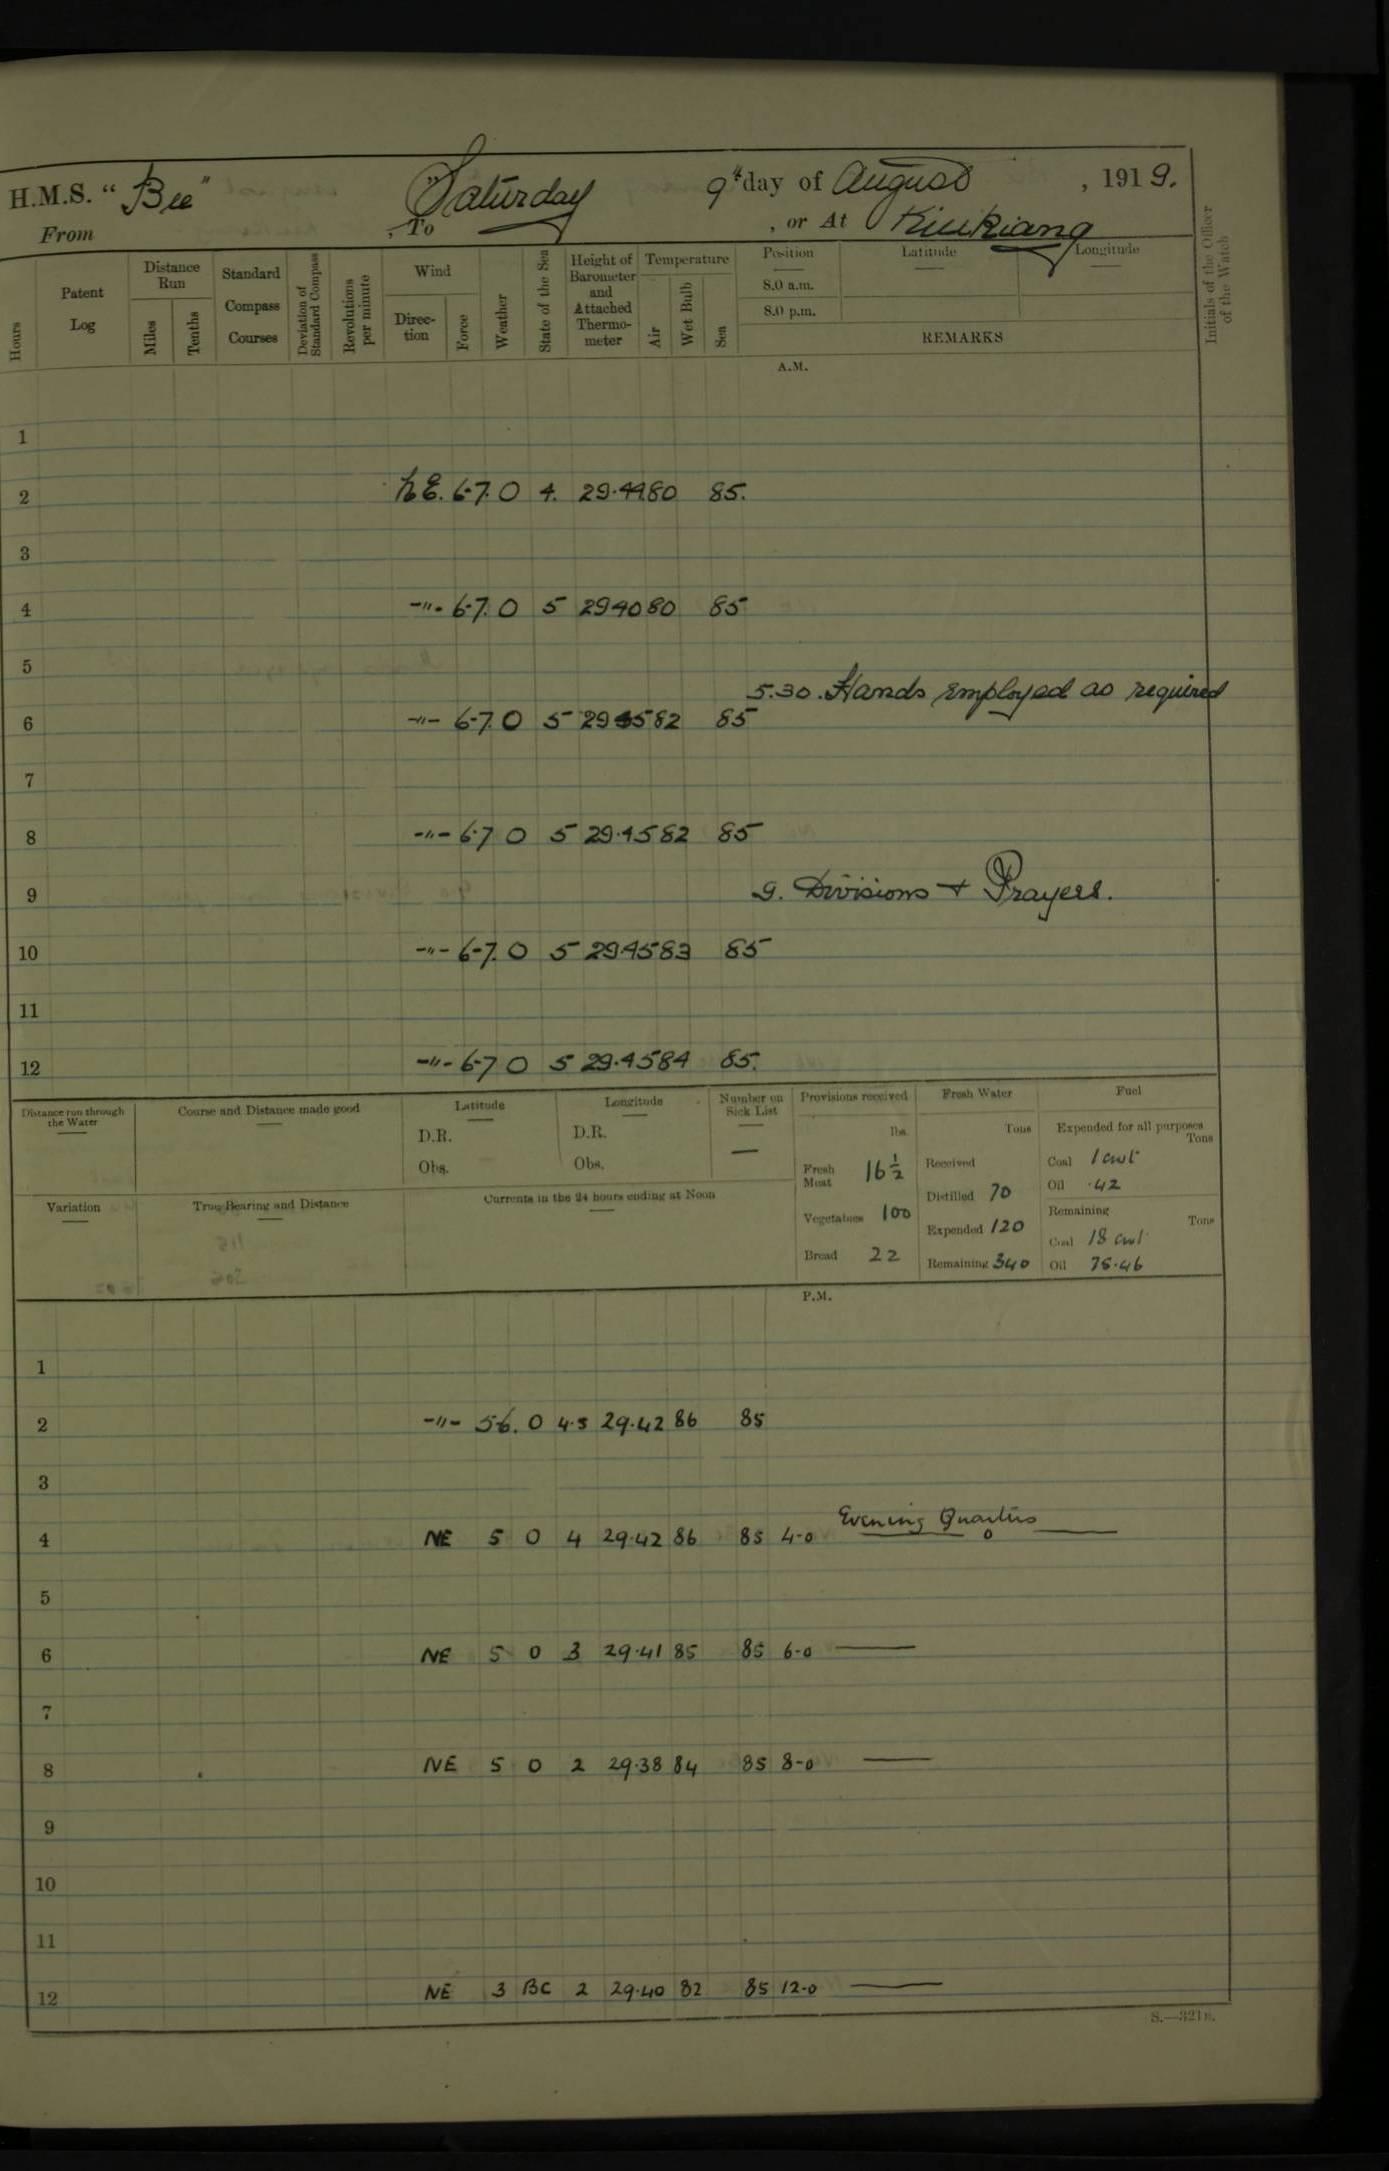 H.M.S. “Bee” Saturday 9th day of August, 1919.
From , To , or At Kiukiang
Hours
Patent Log
Distance Run
Miles
Tenths
Standard Compass Courses
Deviation of Standard Compass
Revolutions per minute
Wind
Direc-tion
Force
Weather
State of the Sea
Height of Barometer and Attached Thermo-meter
Temperature
Air
Wet Bulb
Sea
Position
8.0 a.m.
8.0 p.m.
Latitude
Longitude
REMARKS
Initials of the Officer of the Watch
A.M.
1
2 NE. 6-7. O 4. 29.44 80 85.
3
4 -"- 6-7. O 5 29 40 80 85
5
5.30. Hands employed as required
6 -"- 6-7. O 5 29 45 82 85
7
8 -"- 6-7 O 5 29.45 82 85
9 9. Divisions + Prayers.
10 -"- 6-7. O 5 29.45 83 85
11
12 -"- 6-7 O 5 29.45 84 85.
Distance run through the Water
Course and Distance made good
Latitude
D.R.
Obs.
Longitude
D.R.
Obs.
Number on Sick List
—
Variation
True Bearing and Distance
Currents in the 24 hours ending at Noon
Provisions received
lbs.
Fresh Meat 16 ½
Vegetables 100
Bread 22
Fresh Water
Tons
Received
Distilled 70
Expended 120
Remaining 340
Fuel
Expended for all purposes
Tons
Coal 1 cwt
Oil .42
Remaining
Tons
Coal 18 cwt
Oil 75.46
P.M.
1
2 -"- 56. O 4.5 29.42 86 85
3
4 NE 5 O 4 29.42 86 85 4-0 Evening Quarters
5
6 NE 5 O 3 29.41 85 85 6-0 ——
7
8 NE 5 O 2 29.38 84 85 8-0 ——
9
10
11
12 NE 3 BC 2 29.40 82 85 12-0 ——
S.—321B.